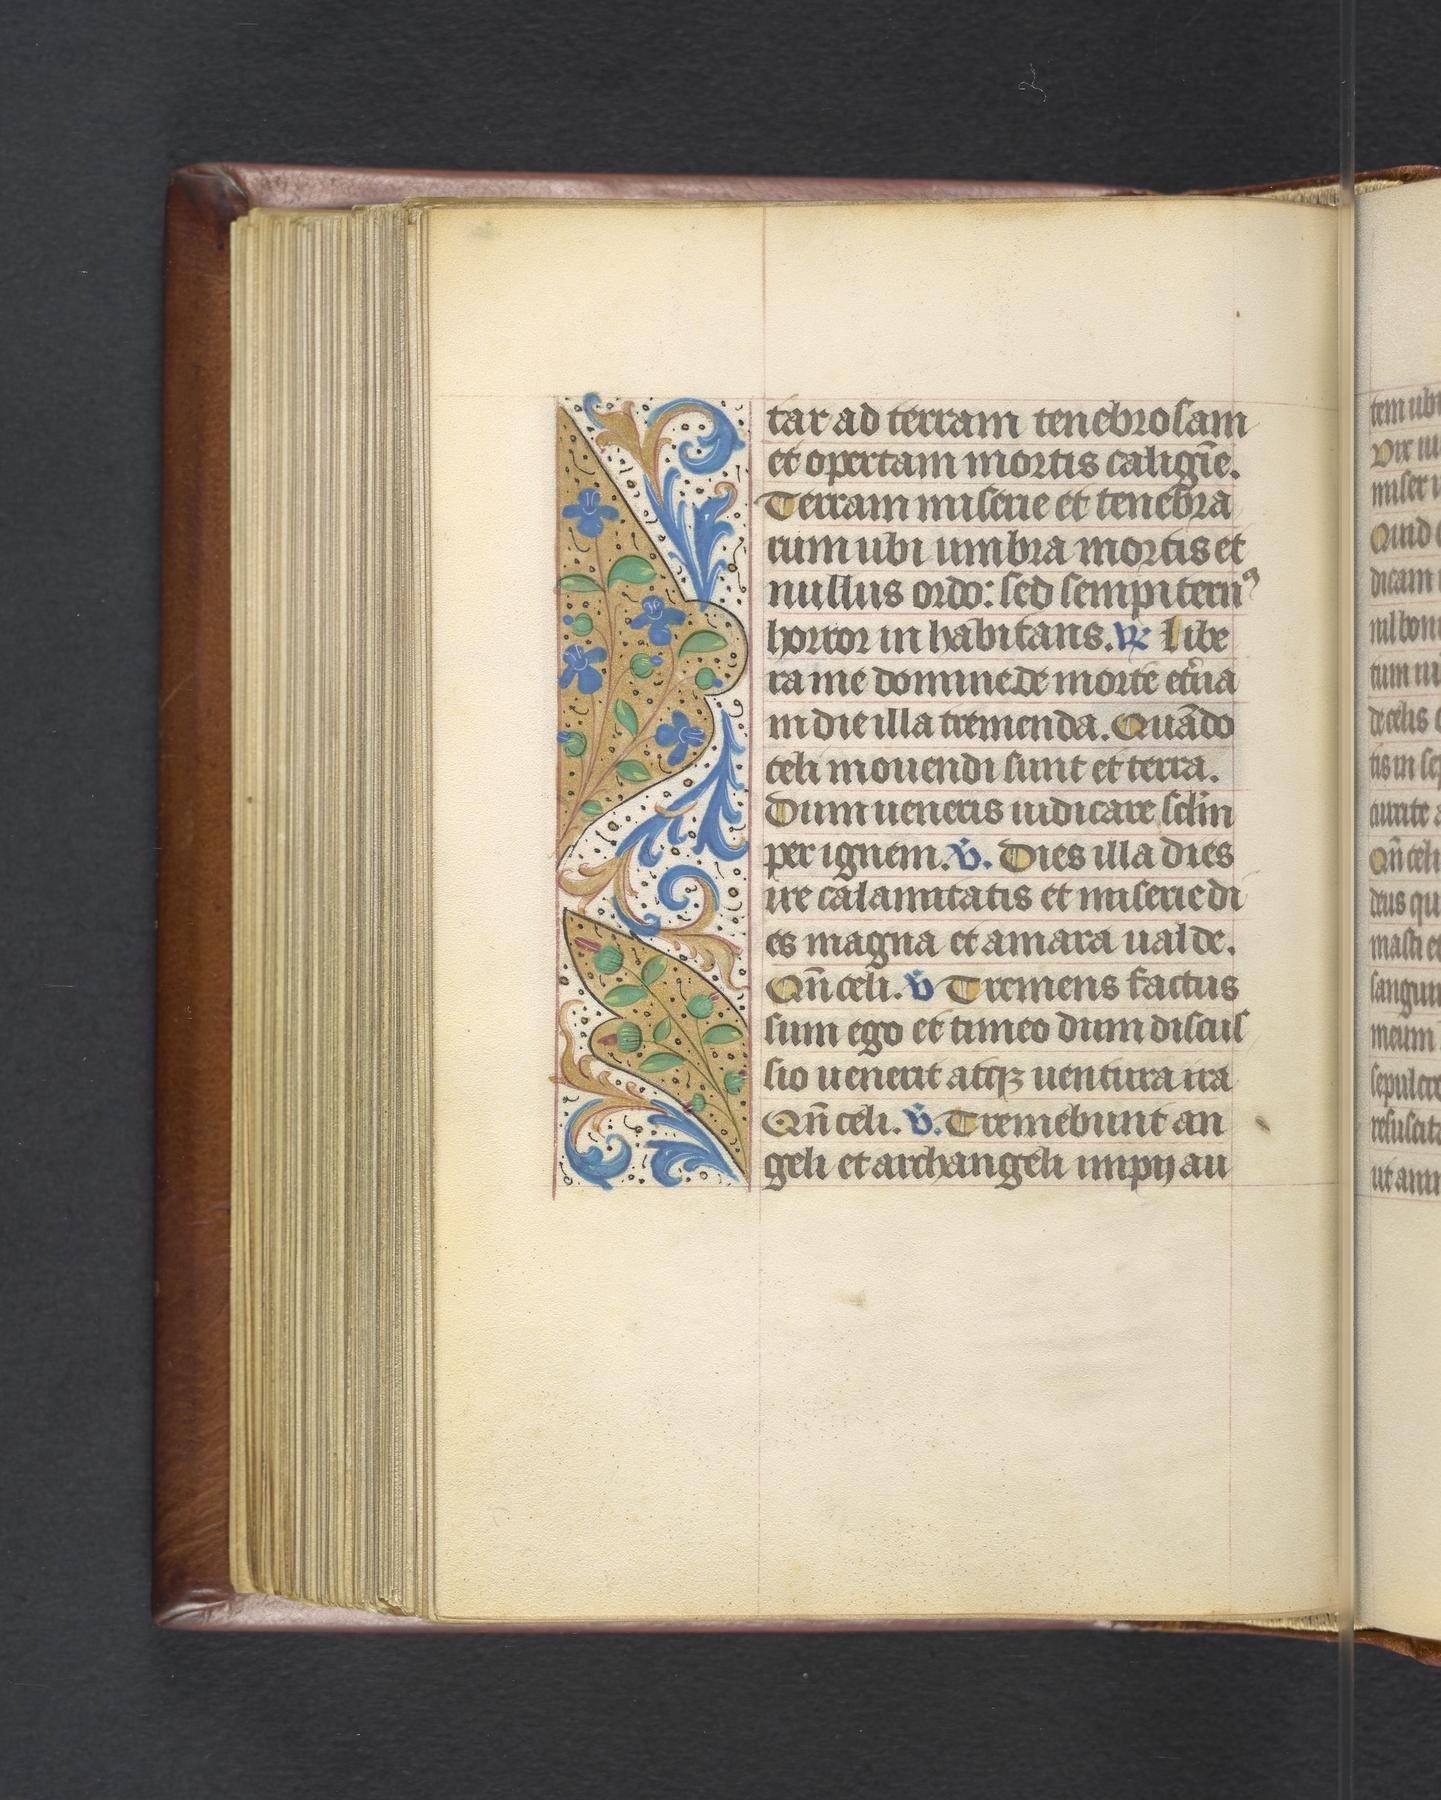 tar ad terram tenebrosam
et opertam mortis caligīe.
Terram miserie et tenebra
rum ubi umbra mortis et
nullus ordo: sed sempitern⁹
horror in habitans. ℟ Libe
ra me domine de morte et̄na
in die illa tremenda. Quādo
celi mouendi sunt et terra.
Dum ueneris iudicare sclm̄
per ignem. ℣. Dies illa dies
ire calamitatis et miserie di
es magna et amara ualde.
Qn̄ celi. ℣ Tremens factus
sum ego et timeo dum discus
sio uenerit atqꝫ uentura ira
Qn̄ celi. ℣. Tremebunt an
geli et archangeli impij au
tem ubi
Vix iu
miser
Quid
dicam
nil boni
tum
de celis
tis in se
aurite
Qn̄ celi
deus qu
masti et
sanguin
meum
sepulcr
resuscita
ut anim